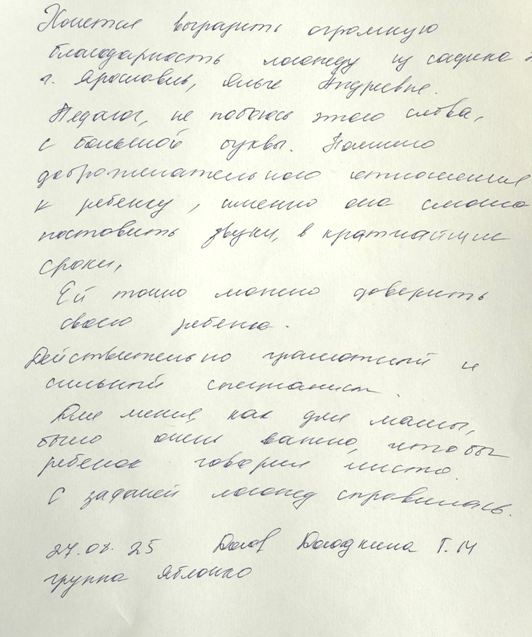 Хочется выразить огромную
благодарность логопеду из садика
г. Ярославль, Ольге Андреевне.
Педагог, не побоюсь этого слова,
с большой буквы. Помимо
доброжелательного отношения
к ребенку, именно она смогла
поставить звуки, в кратчайшие
сроки,
Ей точно можно доверить
своего ребенка.
Действительно грамотный и
сильный специалист.
Для меня, как для мамы,
было очень важно, чтобы
ребенок говорил чисто.
С задачей логопед справилась.
27.07.25 Г.М
группа Яблоко